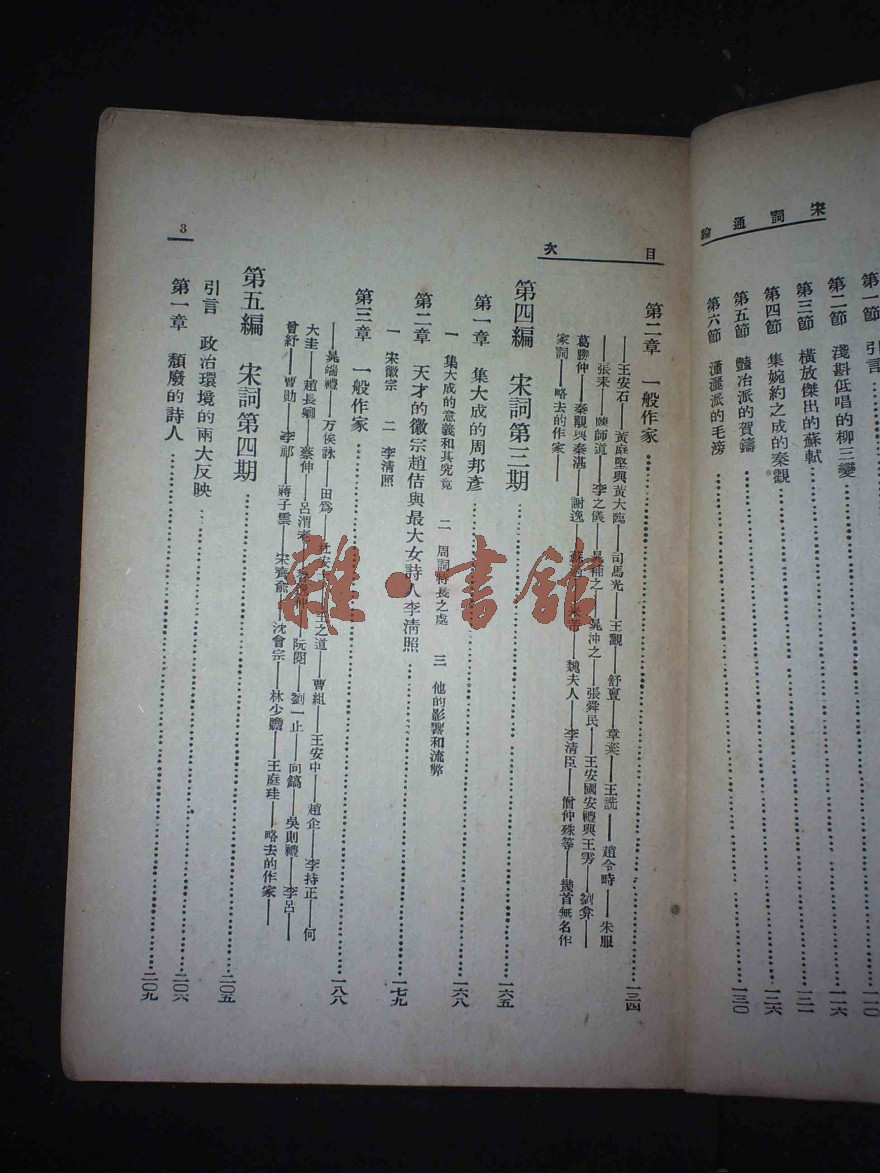 宋詞通論
第一節 引言……一一〇
第二節 淺斟低唱的柳三變……一一六
第三節 橫放傑出的蘇軾……一二一
第四節 集婉約之成的秦觀……一二六
第五節 豔冶派的賀鑄……一三〇
第六節 瀟灑派的毛滂
目次
第二章 一般作家……一三四
——王安石——黃庭堅與黃大臨——司馬光——王觀——舒亶——章楶——王詵——趙令畤——朱服
——張耒——陳師道——李之儀——晁補之——晁沖之——張舜民——王安國安禮與王雱——劉弇——
葛勝仲——秦覯與秦湛——謝逸——蘇——魏夫人——李清臣——僧仲殊等——幾首無名作
家詞——略去的作家——
第四編 宋詞第三期……一六五
第一章 集大成的周邦彥……一六八
一 集大成的意義和其究竟 二 周詞特長之處 三 他的影響和流弊
第二章 天才的徽宗趙佶與最大女詩人李淸照……一七九
一 宋徽宗 二 李清照
第三章 一般作家……一八八
——晁端禮——万俟詠——田爲——杜安——王之道——曹組——王安中——趙企——李持正——何
大圭——趙長卿——蔡伸——呂渭老——阮閱——劉一止——向鎬——吳則禮——李呂——
曾紆——曹勛——李祁——蔣子雲——宋齊愈——沈會宗——林少瞻——王庭珪——略去的作家——
第五編 宋詞第四期……二〇五
引言 政治環境的兩大反映……二〇六
第一章 頹廢的詩人……二〇九
3
雜·書館